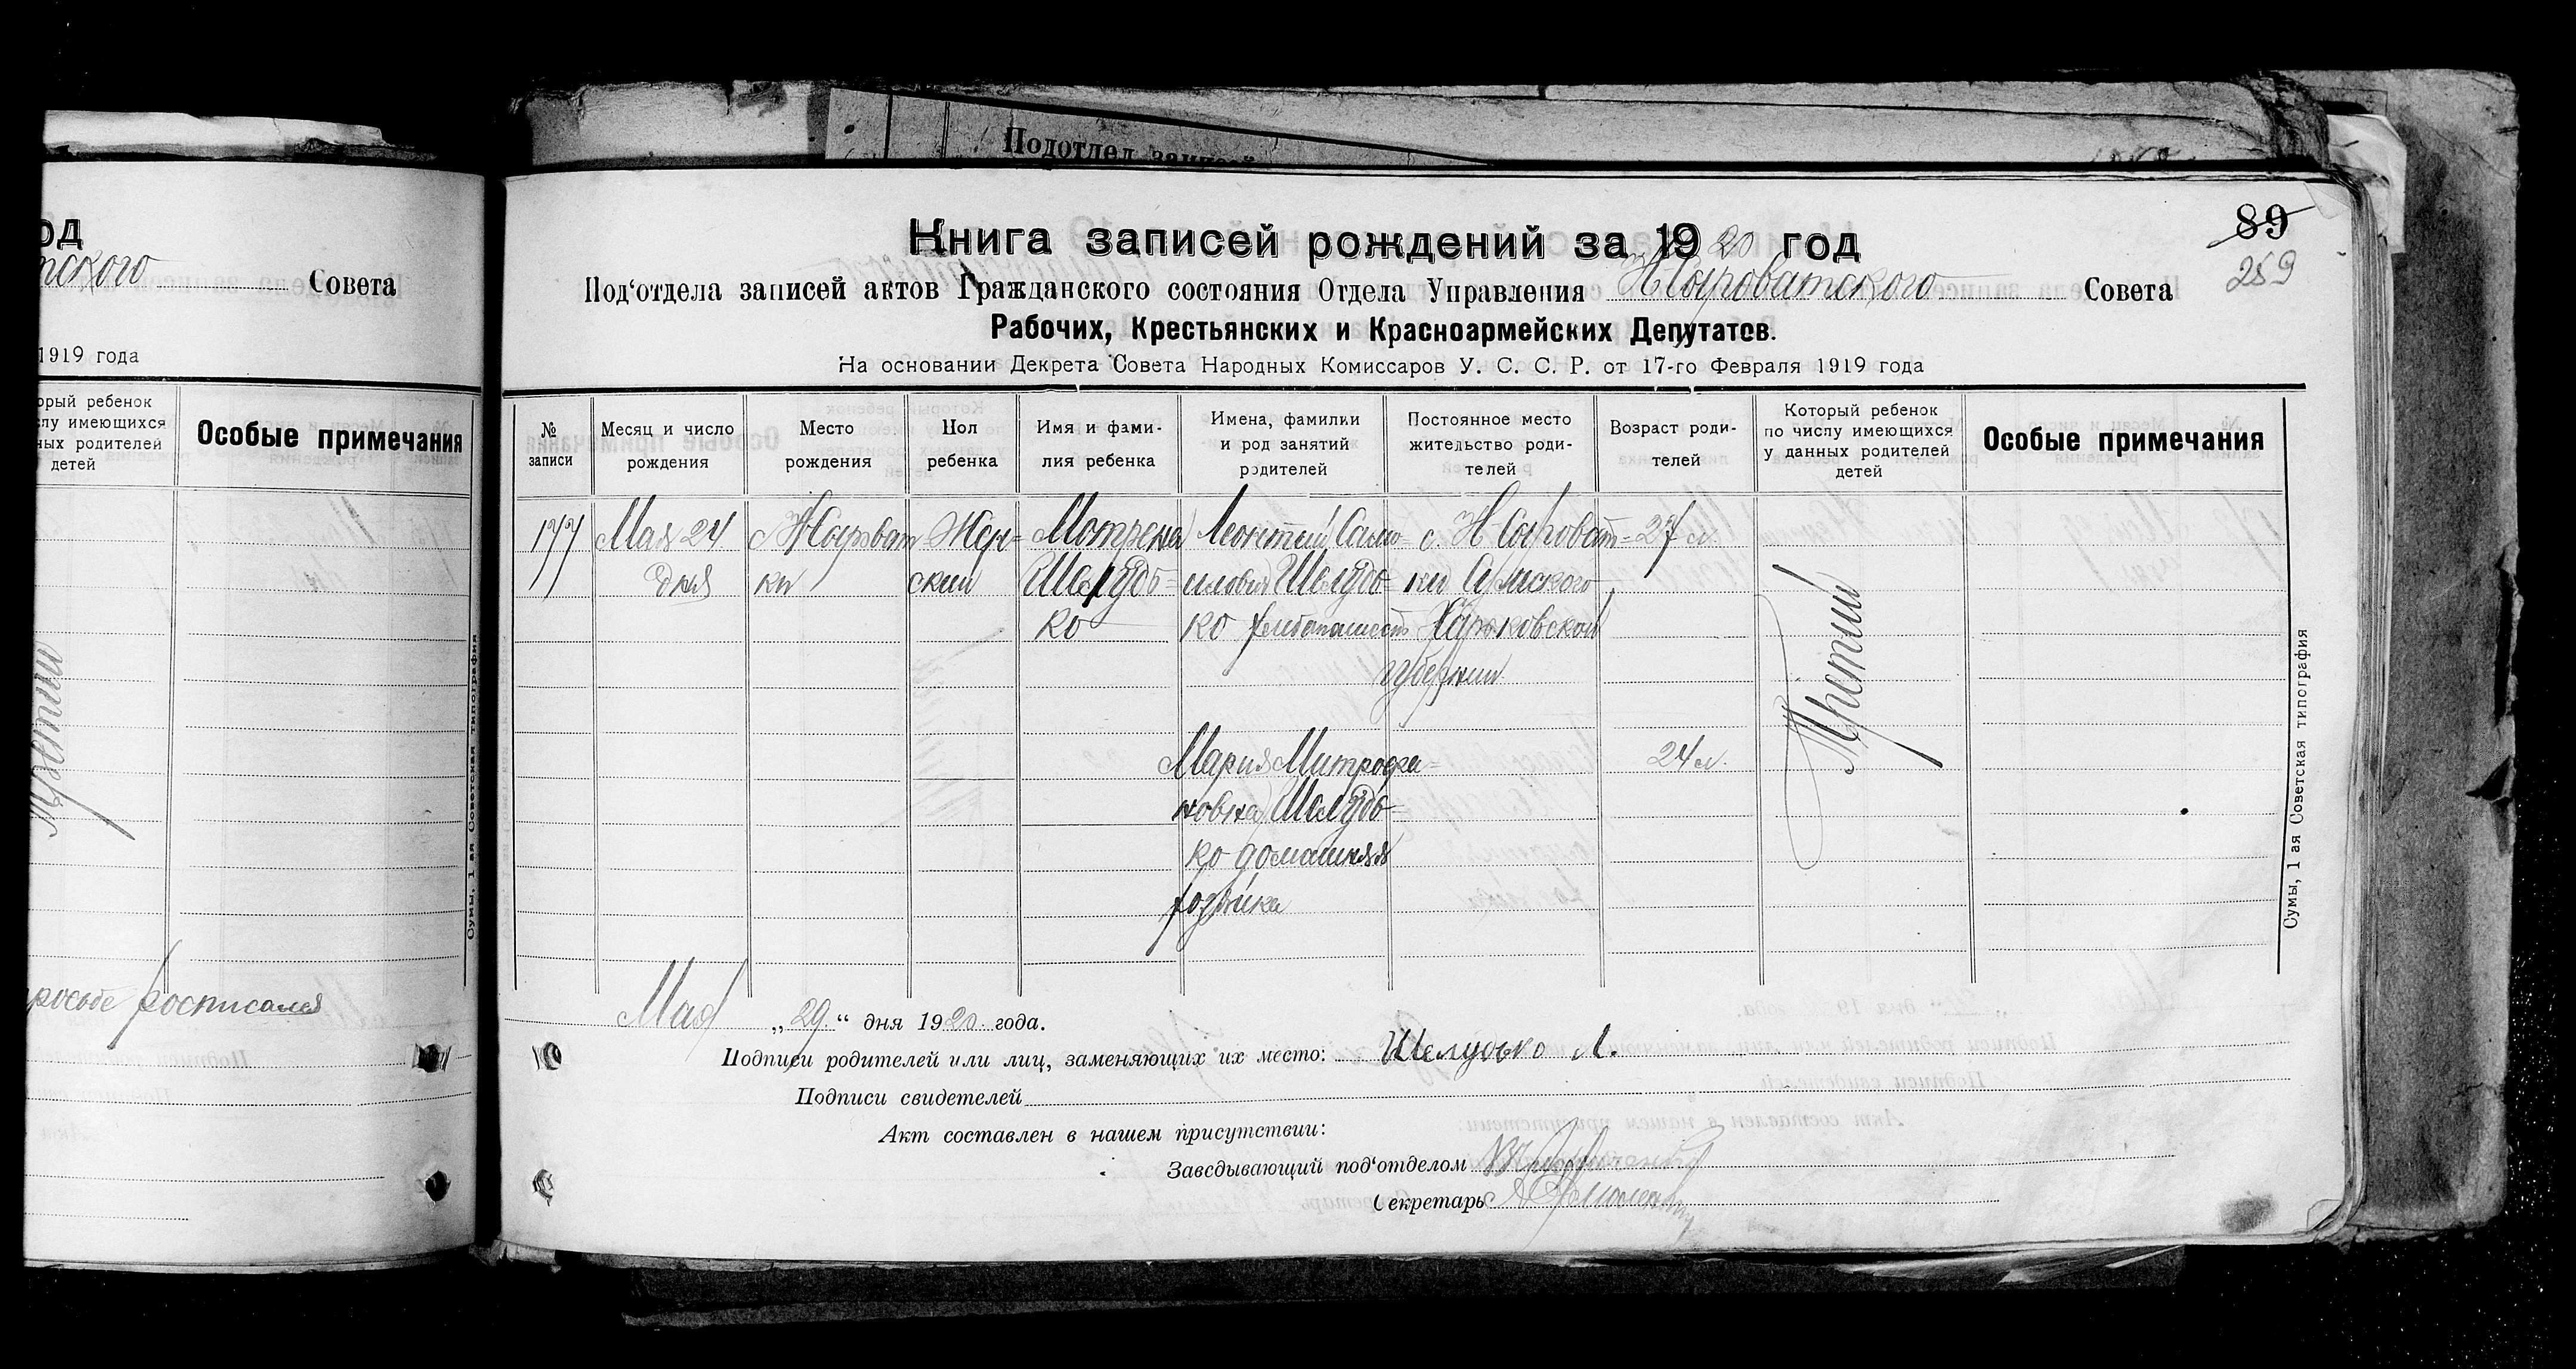 Подотдел записей
од
тского Совета
1919 года
орый ребенок
слу имеющихся
ных родителей
детей
Особые примечания
третий
росьбе росписался
Сумы, 1 ая Советская типография
89
259
Книга записей рождений за 1920 год
Под‘отдела записей актов Гражданского состояния Отдела Управления Н Сыроватского Совета
Рабочих, Крестьянских и Красноармейских Депутатов.
На основании Декрета Совета Народных Комиссаров У. С. С. Р. от 17-го Февраля 1919 года
№ записи
Месяц и число рождения
Место рождения
Пол ребенка
Имя и фами-
лия ребенка
Имена, фамилии
и род занятий
родителей
Постоянное место
жительство роди-
телей
Возраст роди-
телей
Который ребенок
по числу имеющихся
у данных родителей
детей
Особые примечания
177
Мая 24
дня
с Н Сыроват
ки
Жен-
ский
Мотрена
Шелудь-
ко
Леонтий Само-
илович Шелудь-
ко хлебопашест
с. Н Сыроват-
ки Сумского
Харьковской
губернии
27 л.
Третий
Мария Митрофа-
новна Шелудь-
ко домашняя
хозяйка
24 л.
Мая „29“ дня 1920 года.
Подписи родителей или лиц, заменяющих их место: Шелудько Л.
Подписи свидетелей
Акт составлен в нашем присутствии:
Заведывающий под‘отделом
Секретарь
Сумы, 1 ая Советская типография